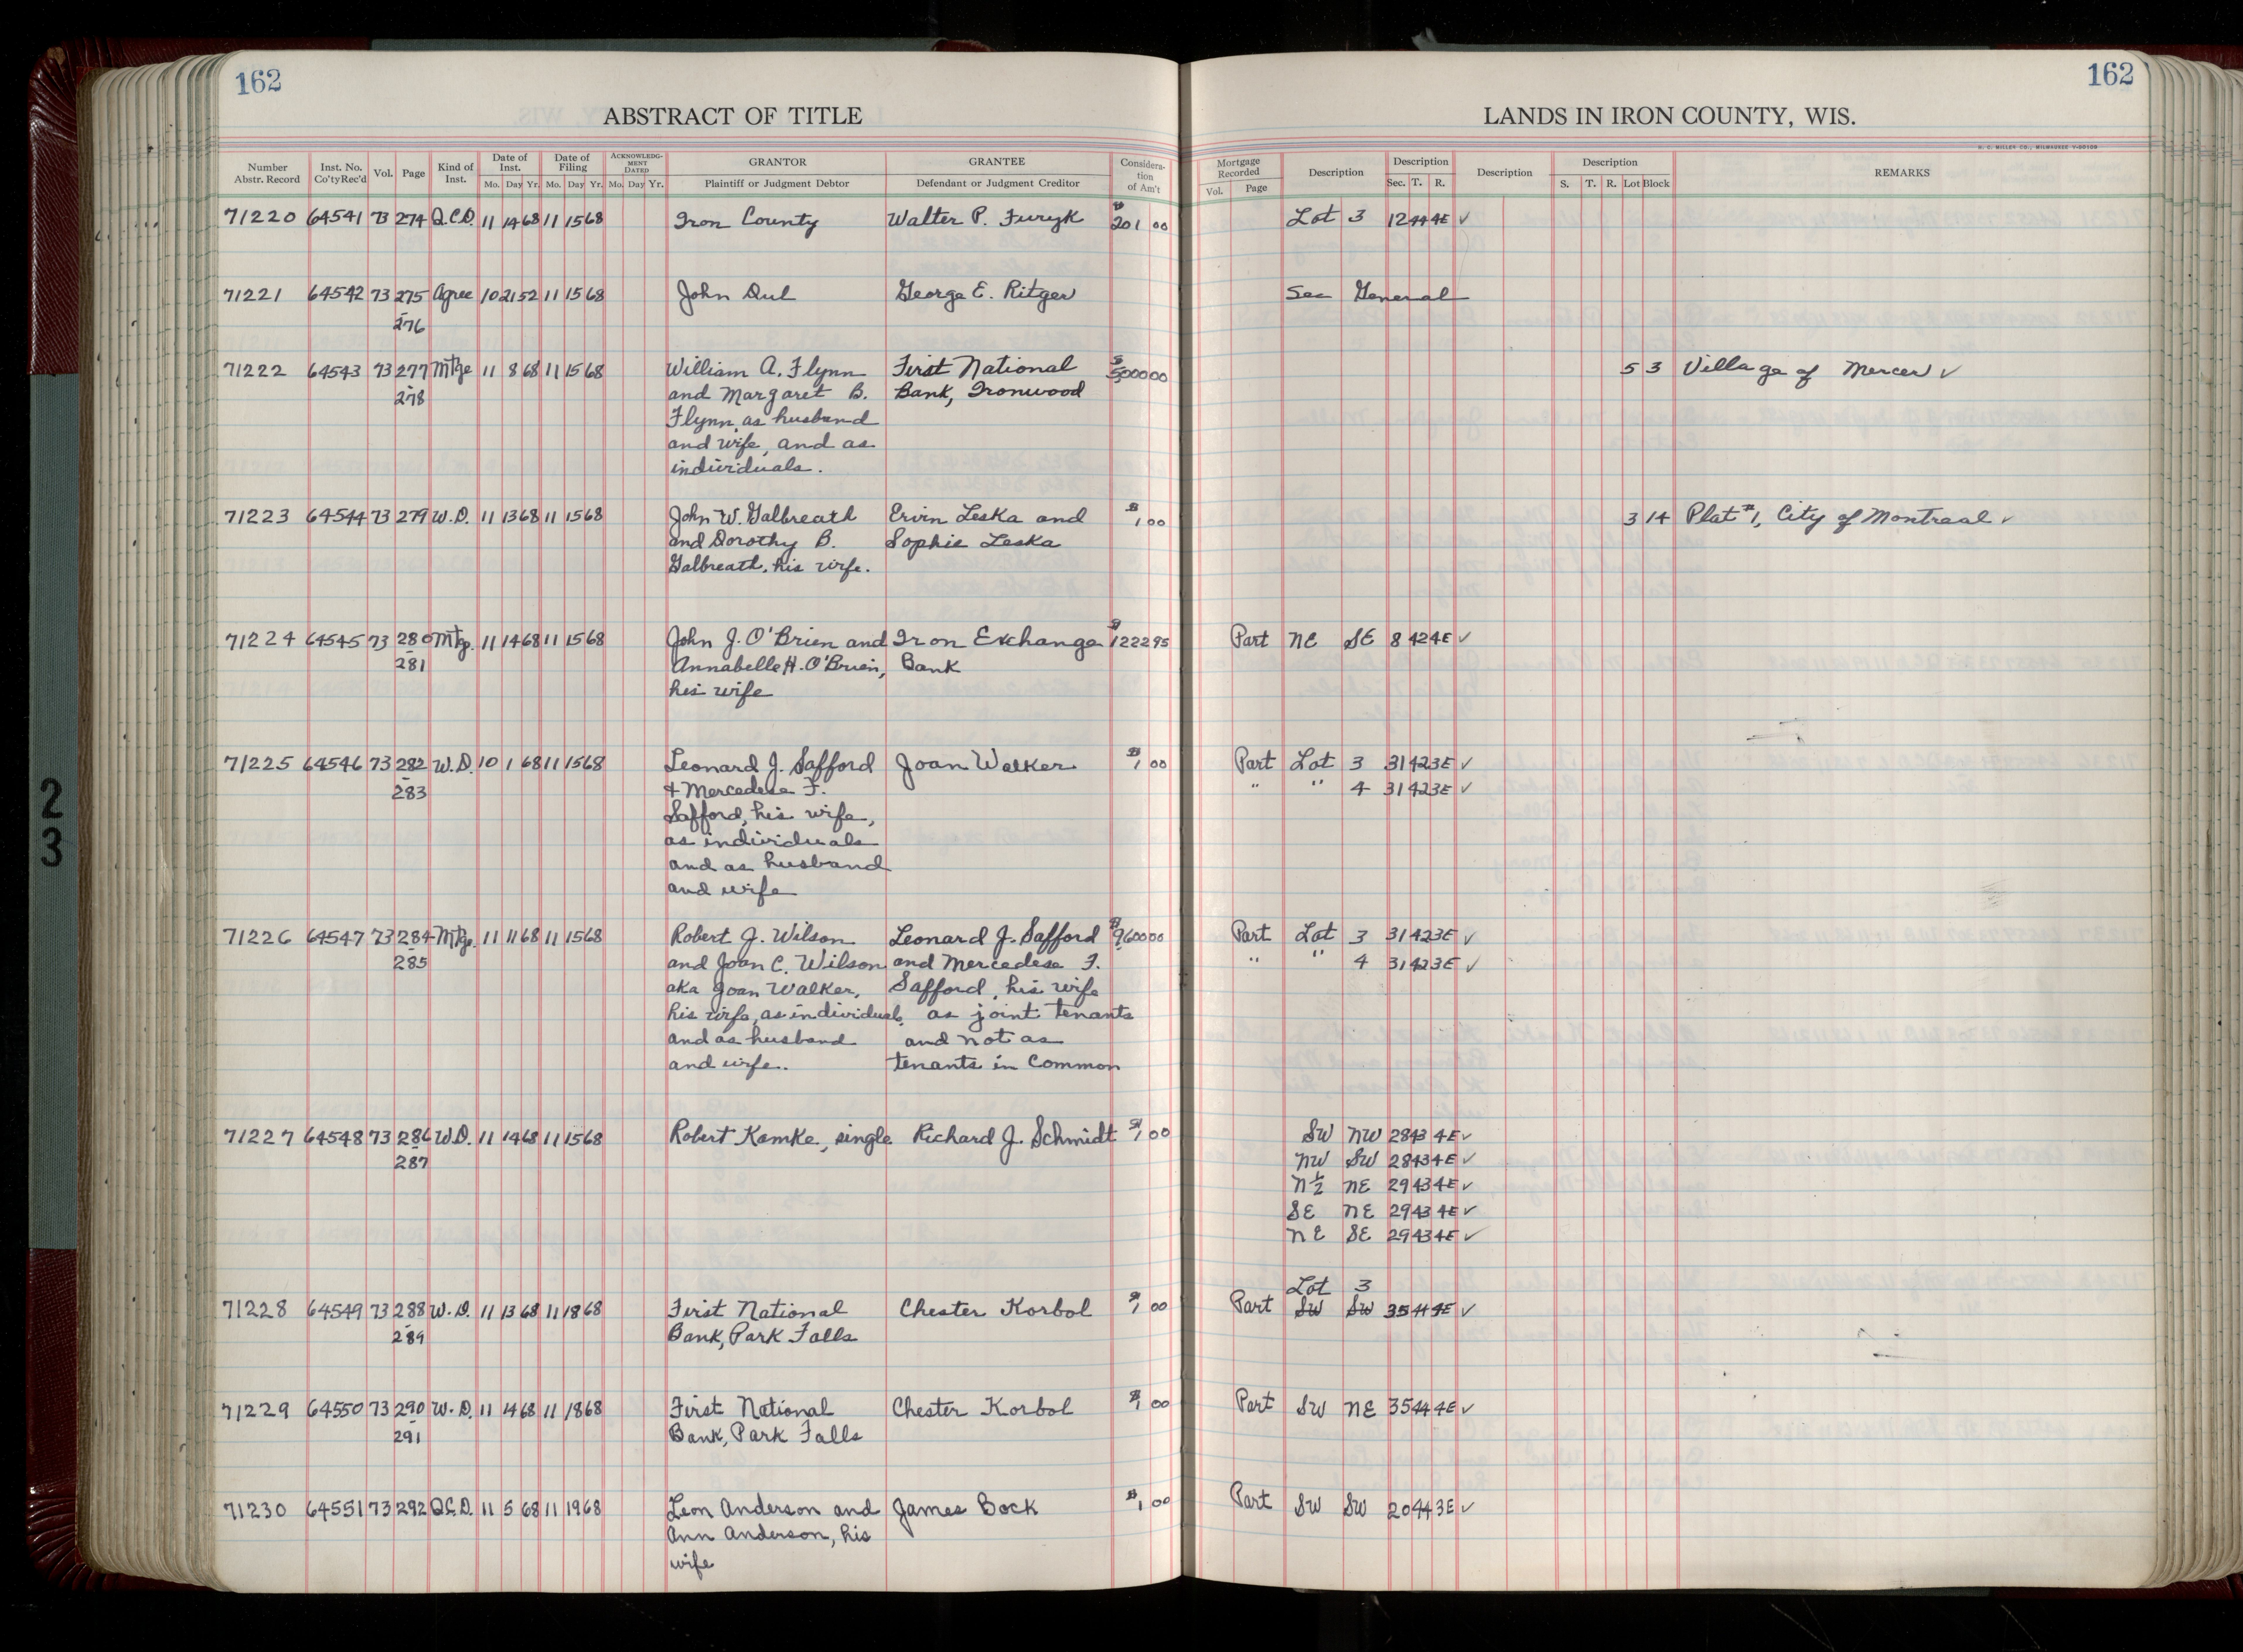 162
ABSTRACT OF TITLE
Number Abstr. Record | Inst. No. Co'ty Rec'd | Vol. | Page | Kind of Inst. | Date of Inst. Mo. Day Yr. | Date of Filing Mo. Day Yr. | ACKNOWLEDGMENT DATED Mo. Day Yr. | GRANTOR Plaintiff or Judgment Debtor | GRANTEE Defendant or Judgment Creditor | Consideration of Am't
162
LANDS IN IRON COUNTY, WIS.
H. C. MILLER CO., MILWAUKEE
Mortgage Recorded Vol. Page | Description | Description Sec. T. R. | Description | Description S. T. R. Lot Block | REMARKS
71220 64541 73 274 Q.C.D. 11 14 68 11 15 68 Iron County Walter P. Furyk $201 00 Lot 3 12 44 4E ✓
71221 64542 73 275 Agree 10 21 52 11 15 68 John Dul George E. Ritger See General
- 276
71222 64543 73 277 Mtge 11 8 68 11 15 68 William A. Flynn First National $5000 00 5 3 Village of Mercer ✓
- 278 and Margaret B. Bank, Ironwood
Flynn, as husband
and wife, and as
individuals.
71223 64544 73 279 W.D. 11 13 68 11 15 68 John W. Galbreath Ervin Leska and $1 00 3 14 Plat #1, City of Montreal ✓
and Dorothy B. Sophie Leska
Galbreath, his wife.
71224 64545 73 280 Mtg. 11 14 68 11 15 68 John J. O'Brien and Iron Exchange $1222 95 Part NE SE 8 42 4E ✓
- 281 Annabelle H. O'Brien, Bank
his wife
71225 64546 73 282 W.D. 10 1 68 11 15 68 Leonard J. Safford Joan Walker $1 00 Part Lot 3 31 42 3E ✓
- 283 + Mercedese F. " " 4 31 42 3E ✓
Safford, his wife,
as individuals
and as husband
and wife
71226 64547 73 284 Mtge. 11 11 68 11 15 68 Robert J. Wilson Leonard J. Safford $9600 00 Part Lot 3 31 42 3E ✓
- 285 and Joan C. Wilson and Mercedese F. " " 4 31 42 3E ✓
aka Joan Walker, Safford, his wife
his wife, as individuals, as joint tenants
and as husband and not as
and wife. tenants in Common
71227 64548 73 286 W.D. 11 14 68 11 15 68 Robert Kamke, single Richard J. Schmidt $1 00 SW NW 28 43 4E ✓
- 287 NW SW 28 43 4E ✓
N½ NE 29 43 4E ✓
SE NE 29 43 4E ✓
NE SE 29 43 4E ✓
Lot 3
71228 64549 73 288 W.D. 11 13 68 11 18 68 First National Chester Korbol $1 00 Part SW SW 35 44 4E ✓
- 289 Bank, Park Falls
71229 64550 73 290 W.D. 11 14 68 11 18 68 First National Chester Korbol $1 00 Part SW NE 35 44 4E ✓
- 291 Bank, Park Falls
71230 64551 73 292 Q.C.D. 11 5 68 11 19 68 Leon Anderson and James Bock $1 00 Part SW SW 20 44 3E ✓
Ann Anderson, his
wife
2
3